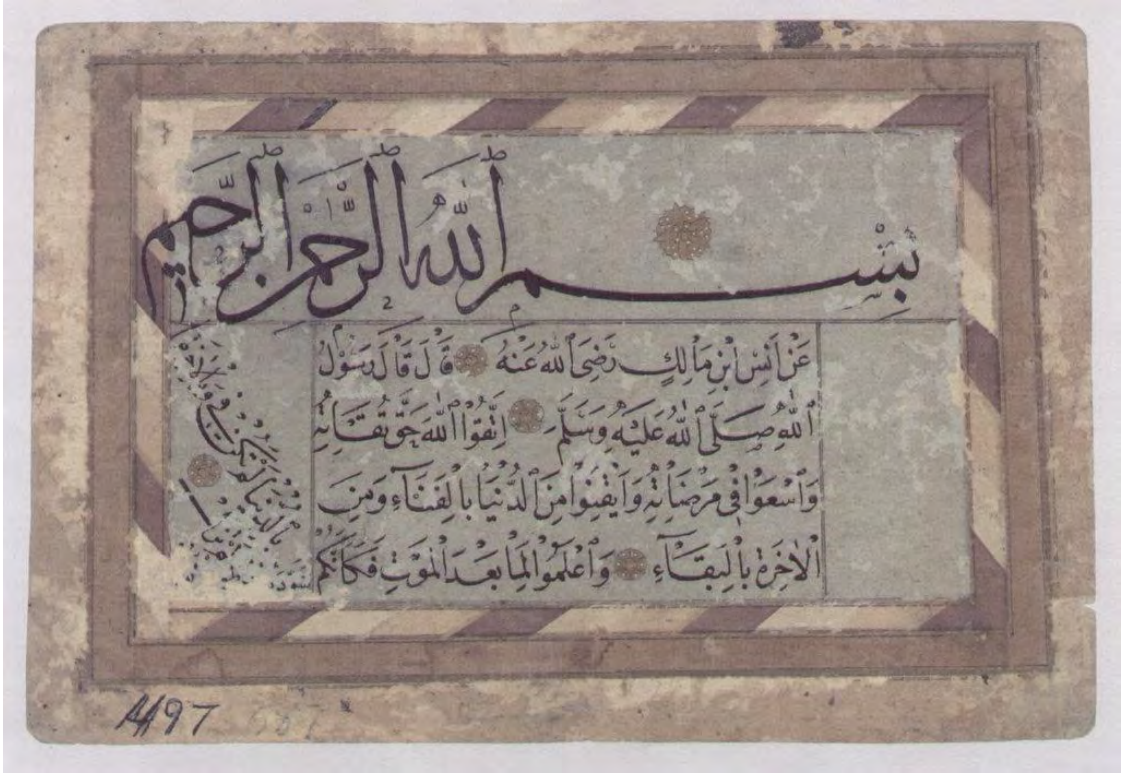 بِسْمِ ٱللَّهِ ٱلرَّحْمٰنِ ٱلرَّحِيمِ
عَنْ اَنَسِ ابْنِ مَالِكٍ رَضِىَ ٱللهُ عَنْهُ قَالَ قَالَ رَسُولُ
ٱللهِ صَلَّى ٱللهُ عَلَيْهِ وَسَلَّمَ اِتَّقُوا ٱللهَ حَقَّ تُقَاتِهِ
وَٱسْعَوْا فِى مَرْضَاتِهِ وَاَيْقِنُوا مِنَ ٱلدُّنْيَا بِالْفَنَآءِ وَمِنَ
الْاٰخِرَةِ بِالْبَقَآءِ وَٱعْمَلُوا لِمَا بَعْدَ الْمَوْتِ فَكَاَنَّكُمْ
بِالدُّنْيَا لَمْ تَكُنْ
1497